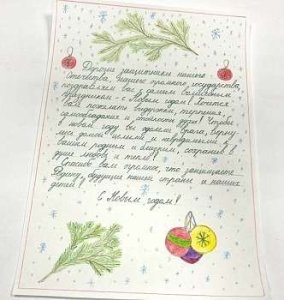 Дорогие защитники нашего
Отечества, нашего огромного государства,
поздравляем вас с самым волшебным
праздником - с Новым годом! Хочется
вам пожелать выдержки, терпения,
самообладания и стойкости духа! Чтобы
в новом году вы одолели врага, вернулись
домой целыми и невредимыми к
вашим родным и близким, сохранив в
душе любовь и тепло!
Спасибо вам огромное, что защищаете
Родину, будущее нашей страны и наших
детей!
С Новым годом!